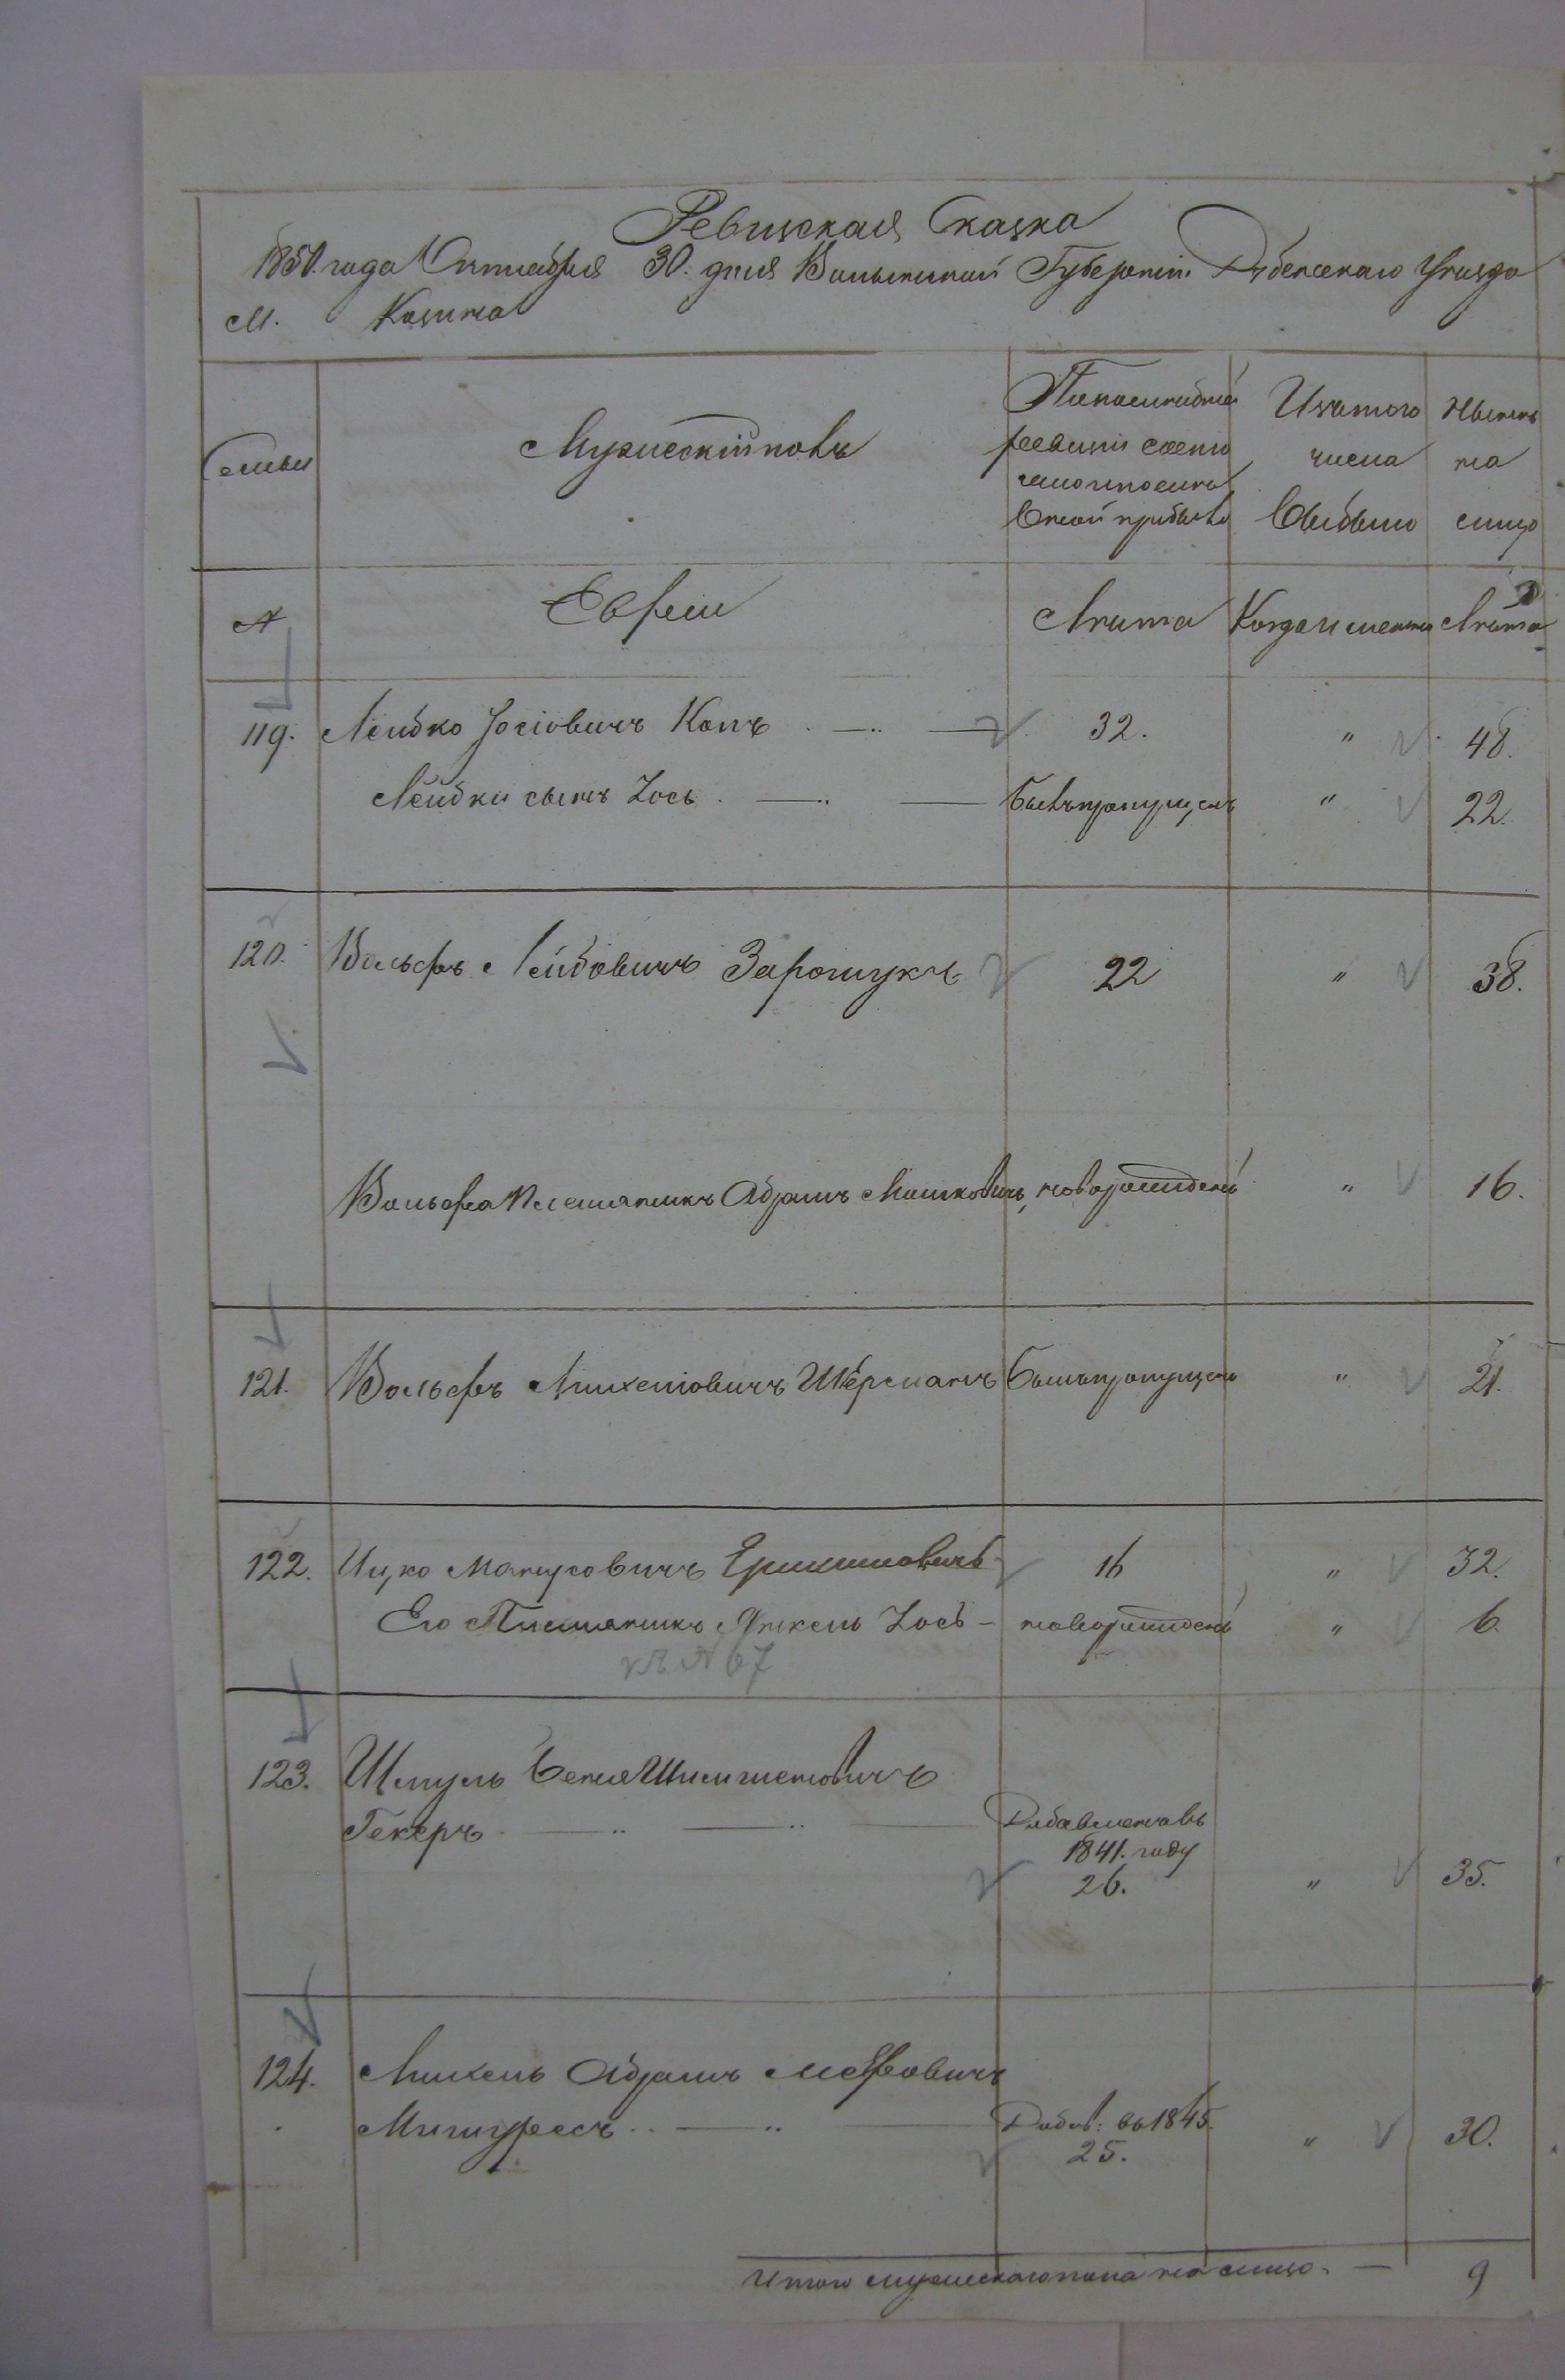 Ревизская Сказка
1850. года Октября 30. дня Волынской Губернии Дубенскаго Уѣзда
М. Козина
Семьи
Мужескій полъ
По последней
ревизіи состо
яло и после
оной прибыло
Изъ того
числа
выбыло
Нынѣ
на
лицо
№
Евреи
Лѣта
Когда именно
Лѣта
119. Лейбко Іосіовичъ Копъ 32. " 48.
Лейбки сынъ Іось Былъ пропущенъ " 22.
120. Вольфъ Лейбовичъ Зарощукъ 22 " 38.
Вольфа Племянникъ Абрамъ Мошковичъ, новорожденъ " 16.
121. Вольфъ Михелiовичъ Шерманъ Былъ пропущенъ " 21.
122. Ицко Манусовичъ 16 " 32.
Его Племянникъ Янкель Іось - новорожденъ " 6.
№ 67
123. Шмуль
Гекеръ
Добавленъ въ
1841. году
26. " 35.
124. Михель Абрамъ
Добав: въ 1845.
25. " 30.
Итого мужескаго пола на лицо. — 9